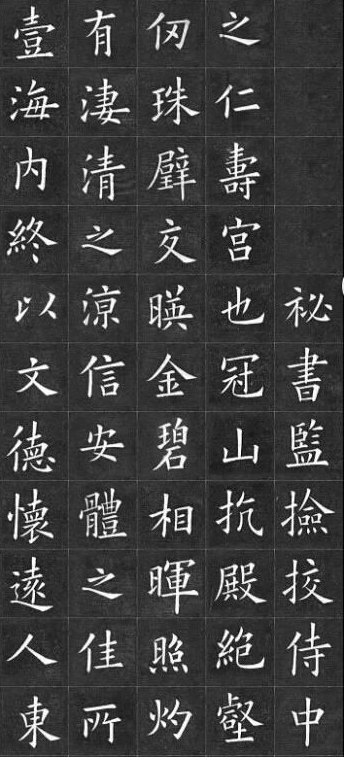 祕書監撿挍侍中
之仁壽宫也冠山抗殿絕壑
仞珠璧交暎金碧相暉照灼
有淒清之涼信安體之佳所
壹海内終以文德懷遠人東